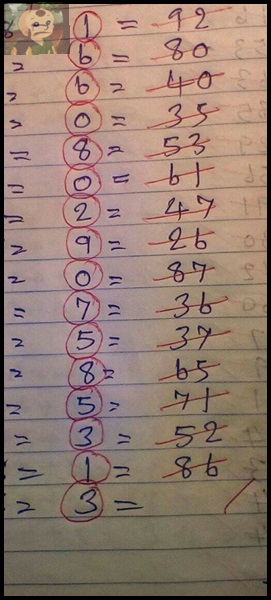 1 = 92
= 6 = 80
= 6 = 40
= 0 = 35
= 8 = 53
= 0 = 61
= 2 = 47
= 9 = 26
= 0 = 87
= 7 = 36
= 5 = 37
= 8 = 65
= 5 = 71
= 3 = 52
= 1 = 86
= 3 =